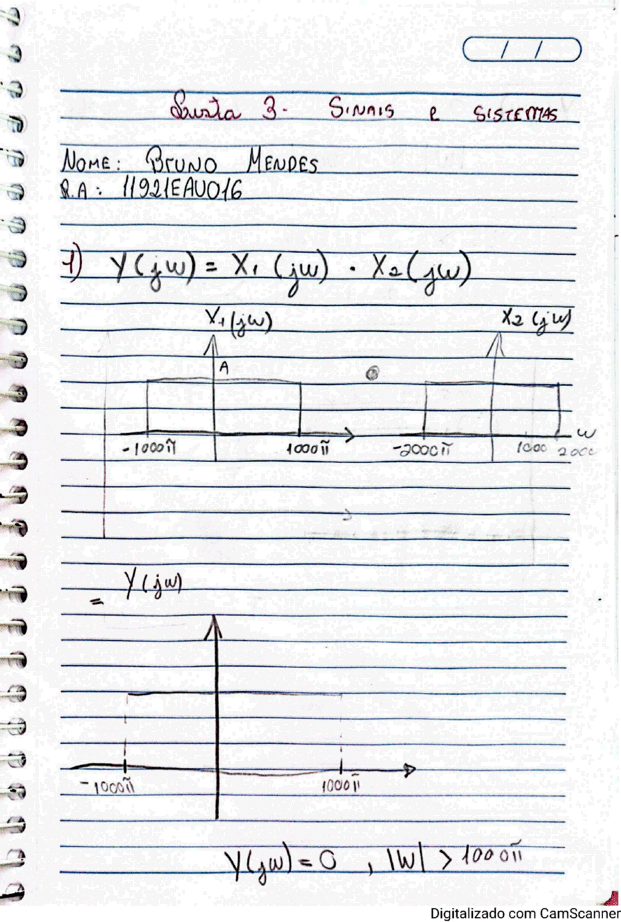 / /
Lista 3 - SINAIS e SISTEMAS
NOME: BRUNO MENDES
R.A: 11921EAU016
1) Y(jω) = X₁(jω) · X₂(jω)
X₁(jω) X₂(jω)
A
-1000π 1000π -2000π 1000 2000 ω
= Y(jω)
-1000π 1000π
Y(jω) = 0 , |W| > 1000π
Digitalizado com CamScanner